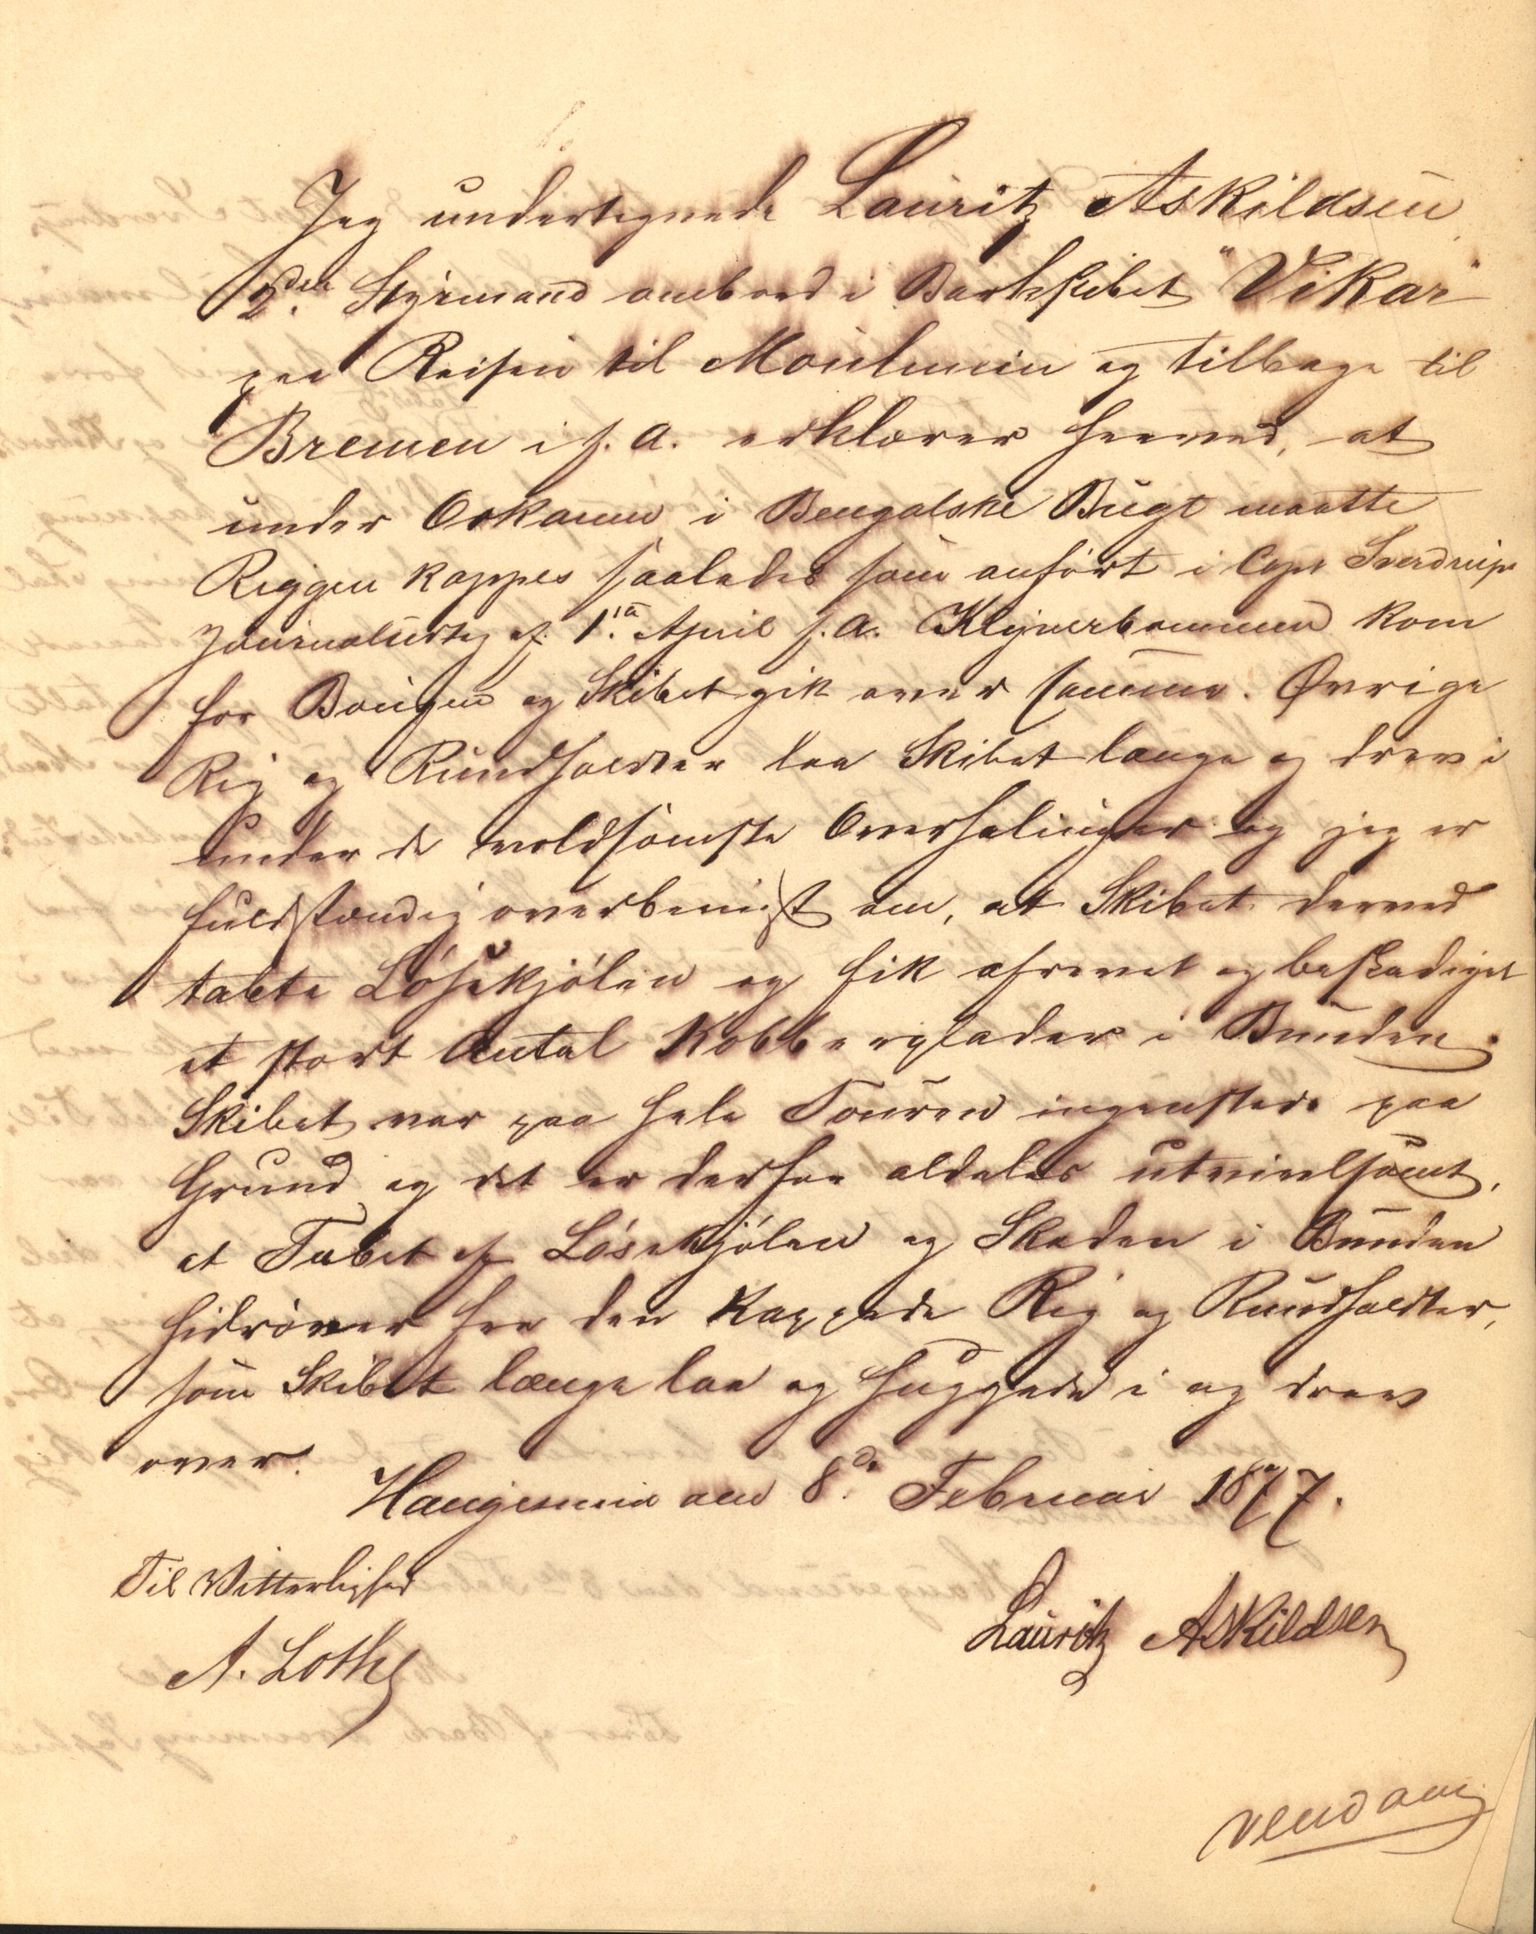 Jeg undertegnede Lauritz Askildsen
2den Styrmand ombord i Barkskibet "Vikar"
paa Reisen til Moulmein og tilbage til
Bremen i f. A. erklærer herved, at
under Orkanen i Bengalske Bugt maatte
Riggen kappes saaledes som anført i Capt Sverdrups
Journaludtog af 1ste April f. A. Klyverbommen kom
for Bougen og Skibet gik over samme. Øvrige
Rig og Rundholdter laa Skibet længe og drev i
under de voldsomste Overhalinger og jeg er
fuldstændig overbevist om, at Skibet derved
tabte Løsekjølen og fik afrevet og beskadiget
et stort Antal Kobberplader i Bunden.
Skibet var paa hele Touren ingensteds paa
Grund og det er derfor aldeles utvivlsomt,
at Tabet af Løsekjølen og Skaden i Bunden
hidrører fra den kappede Rig og Rundholdter,
som Skibet længe laa og huggede i og drev
over.
Haugesund den 8de Februar 1877.
Til Vitterlighed
Lauritz Askildsen
A. Lothe
vend om